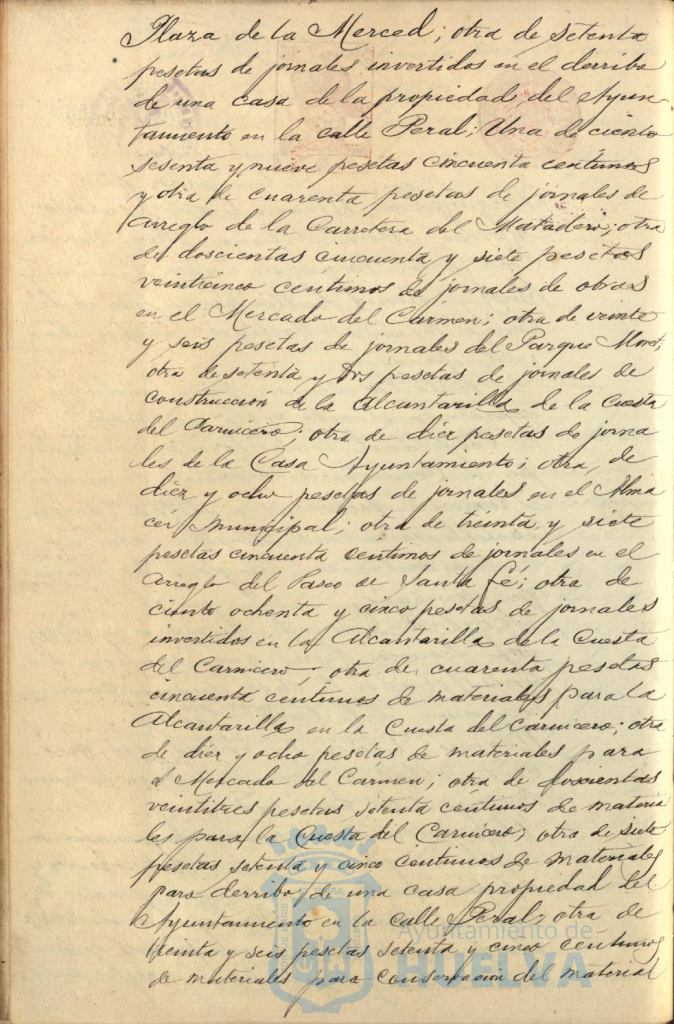 Plaza de la Merced; otra de setenta
pesetas de jornales invertidos en el derribo
de una casa de la propiedad del Ayun
tamiento en la calle Peral; Una de ciento
sesenta y nueve pesetas cincuenta centimos
y otra de cuarenta pesetas de jornales de
arreglo de la Carretera del Matadero; otra
de doscientas cincuenta y siete pesetas
veinticinco centimos de jornales de obras
en el Mercado del Carmen; otra de veinte
y seis pesetas de jornales del Parque Moret;
otra de setenta y dos pesetas de jornales de
construccion de la Alcantarilla de la Cuesta
del Carnicero; otra de diez pesetas de jorna
les de la Casa Ayuntamiento; otra de
diez y ocho pesetas de jornales en el Alma
cén Municipal; otra de treinta y siete
pesetas cincuenta centimos de jornales en el
arreglo del Paseo de Santa Fé; otra de
ciento ochenta y cinco pesetas de jornales
invertidos en la Alcantarilla de la Cuesta
del Carnicero; otra de cuarenta pesetas
cincuenta centimos de materiales para la
Alcantarilla en la Cuesta del Carnicero; otra
de diez y ocho pesetas de materiales para
el Mercado del Carmen; otra de doscientas
veintitres pesetas setenta centimos de materia
les para la Cuesta del Carnicero; otra de siete
pesetas setenta y cinco centimos de materiales
para derribo de una casa propiedad del
Ayuntamiento en la calle Peral; otra de
treinta y seis pesetas setenta y cinco centimos
de materiales para conservacion del material
Ayuntamiento de
HUELVA